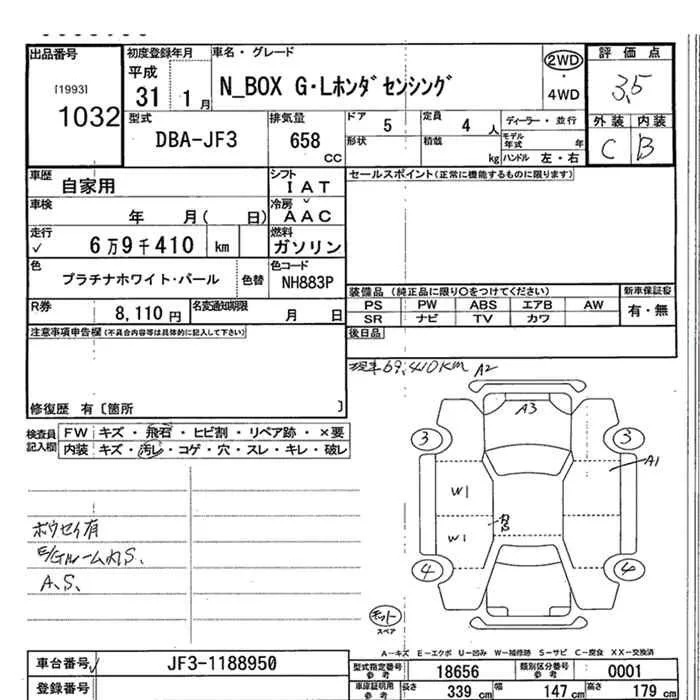 出品番号 初度登録年月 車名・グレード 評価点
[1993] 平成 2WD
1032 31 1月 N_BOX G・Lホンダセンシング ・ 3.5
4WD
型式 排気量 ドア 5 定員 4人 ディーラー・並行 外装 内装
DBA-JF3 658 CC 形状 積載 kg モデル年式 年 C B
ハンドル 左・右
車歴 自家用 シフト IAT セールスポイント(正常に機能するものに限ります)
車検 年 月( 日) 冷房 AAC
走行 ✓ 6万9千410 km 燃料 ガソリン
色 プラチナホワイト・パール 色替 色コード NH883P
装備品 (純正品に限り○をつけてください) 新車保証書
PS PW ABS エアB AW 有・無
SR ナビ TV カワ
R券 8,110円 名変通知期限 月 日
後日品
注意事項申告欄(不具合内容等は具体的に記入して下さい)
現車69,410KM A2
修復歴 有〔箇所 〕
A3
検査員記入欄 FW キズ・飛石・ヒビ割・リペア跡・×要
内装 キズ・汚レ・コゲ・穴・スレ・キレ・破レ
3 3
A1
W1
W1
ボウセイ有
E/GルームカS.
A.S.
4 4
スペア
A-キズ E-エクボ U-凹み W-補修跡 S-サビ C-腐食 XX-交換済
車台番号 JF3-1188950 型式指定番号 参考 18656 類別区分番号 参考 0001
登録番号 車庫証明用 参考 長さ 339 cm 幅 147 cm 高さ 179 cm